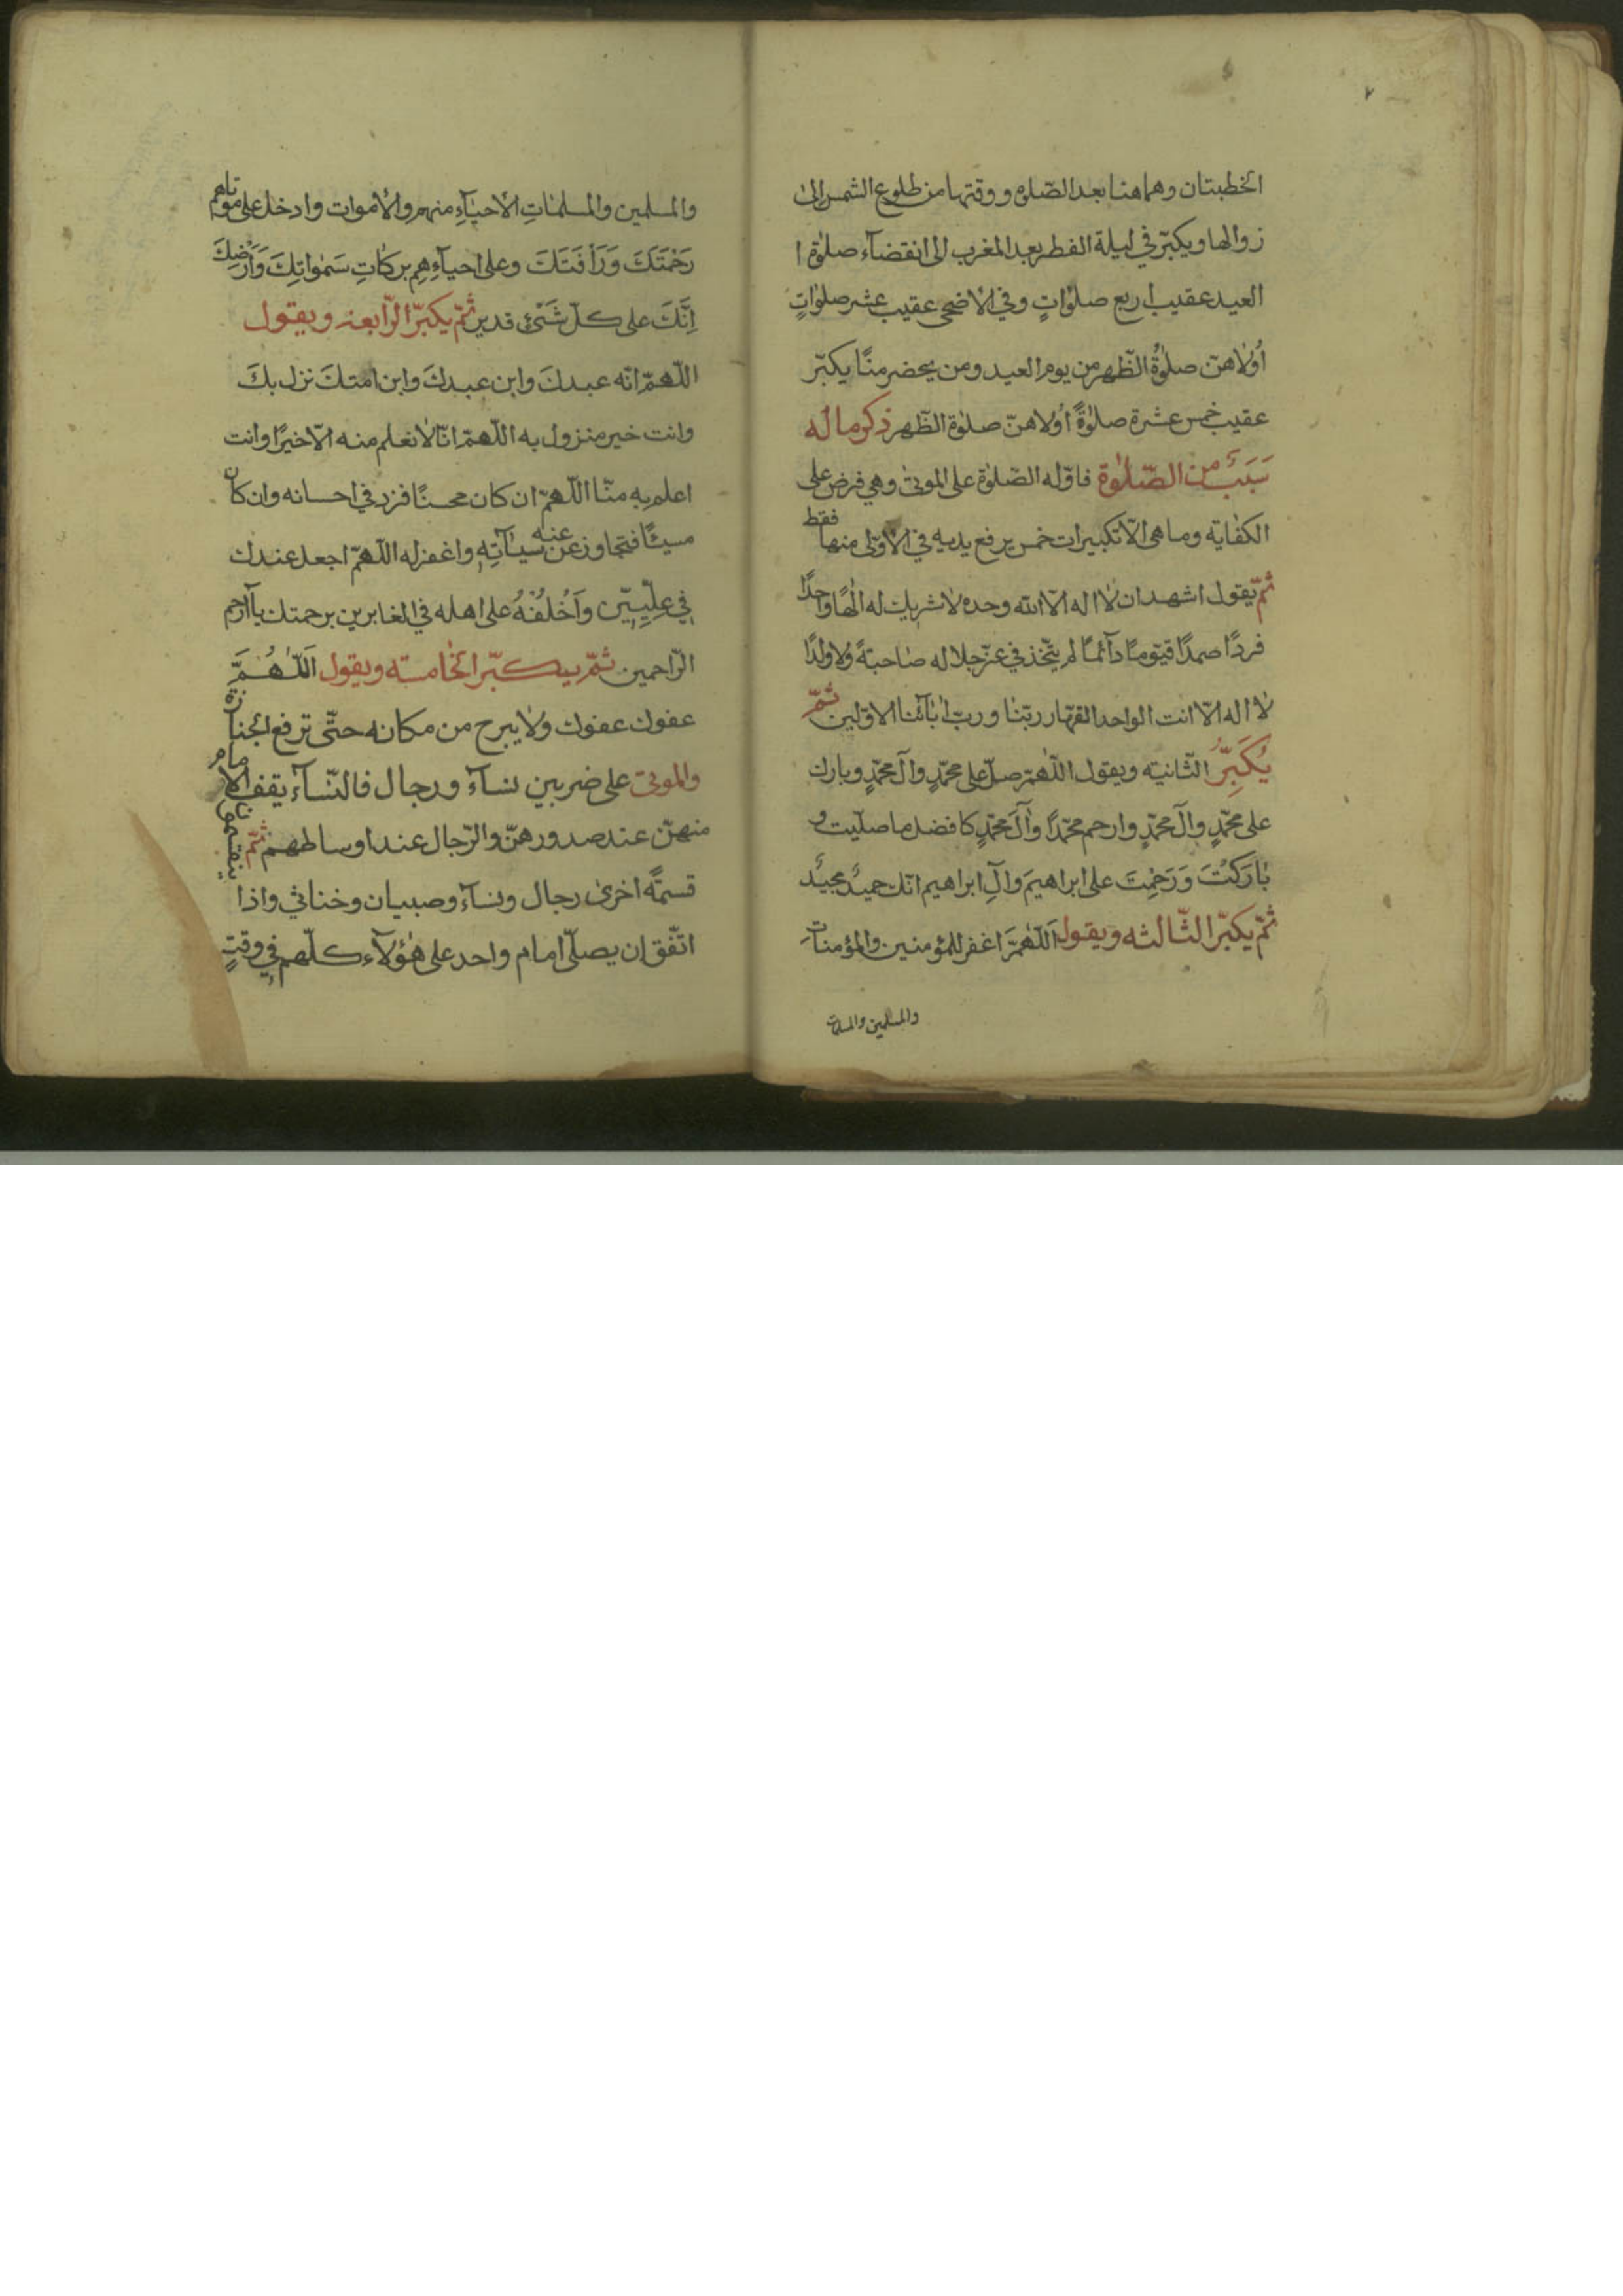 الخطبتان وهما هنا بعد الصّلوة ووقتها من طلوع الشمس الى
زوالها ويكبّر في ليلة الفطر بعد المغرب الى انقضآء صلوة ا
العيد عقيب اربع صلوٰاتٍ وفي الاضحى عقيب عشر صلوٰاتٍ
أولاهنّ صلوٰة الظّهر من يوم العيد ومن يحضر منًا يكبّر
عقيب خمس عشرة صلوٰةً أولاهنّ صلوٰة الظّهر ذكر ما له
سَبَبٌ من الصّلوٰة فاوّله الصّلوٰة على الموتىٰ وهي فرض على
الكفاية وما هى الّا تكبيرات خمس يرفع يديه في الاولى منها فقط
ثمّ يقول اشهد ان لا اله الّا الله وحده لا شريك له الٰهًا واحدًا
فردًا صمدًا قيّومًا دآئمًا لم يتّخذ في عزّ جلاله صاحبةً ولا ولدًا
لا اله الّا انت الواحد القهّار ربّنا وربّ اٰبآئنا الاوّلين ثمّ
يُكَبِّرُ الثّانيه ويقول اللّٰهمّ صلّ على محمّدٍ وآل محمّدٍ وبارك
على محمّدٍ وآل محمّدٍ وارحم محمّدًا وآلَ محمّدٍ كافضل ما صلّيت و
بٰارَكْتَ وَرَحِمْتَ على ابراهيمَ وآلِ ابراهيم انّك حميدٌ مجيدٌ
ثمّ يكبّر الثّالثه ويقول اَللّٰهُمَّ اغفر للمؤمنين والمؤمنات
والمسلمين والمسلمات
والمسلمين والمسلمٰاتِ الاحيٰآءِ منهم والأموات وادخل على موتاهم
رَحْمَتَكَ وَرَأْفَتَكَ وعلى احيآءِهِم بركاتِ سَمٰواتِكَ وَاَرْضِكَ
اِنَّكَ على كلّ شَىْءٍ قدير ثمّ يكبّر الرّابعة ويقول
اللّهمّ انّه عبدكَ وابن عبدكَ وابن امتكَ نزل بكَ
وانت خير منزول به اللّهمّ انّا لا نعلم منه الّا خيرًا وانت
اعلم بِه منّا اللّهمّ ان كان محسنًا فزد في احسانه وان كان
مسيئًا فتجاوز عن عنه سيّاٰتِه واغفر له اللّهمّ اجعل عندك
في عِلّيِيّن وَاَخْلُفْهُ على اهله في الغابرين برحمتك يآ ارحم
الرّاحمين ثمّ يكبّر الخامسة ويقول اَللّٰهُمَّ
عفوك عفوك ولا يبرح من مكانه حتّى ترفع الجنازة
والموتى على ضربين نسآء ورجال فالنّسآء يقف الامام
منهنّ عند صدورهنّ والرّجال عند اوساطهم ثمّ ينقسمون
قسمةً اخرىٰ رجال ونسآء وصبيان وخناثى واذا
اتّفق ان يصلّى امام واحد على هٰؤلآء كلّهم في وقتٍ